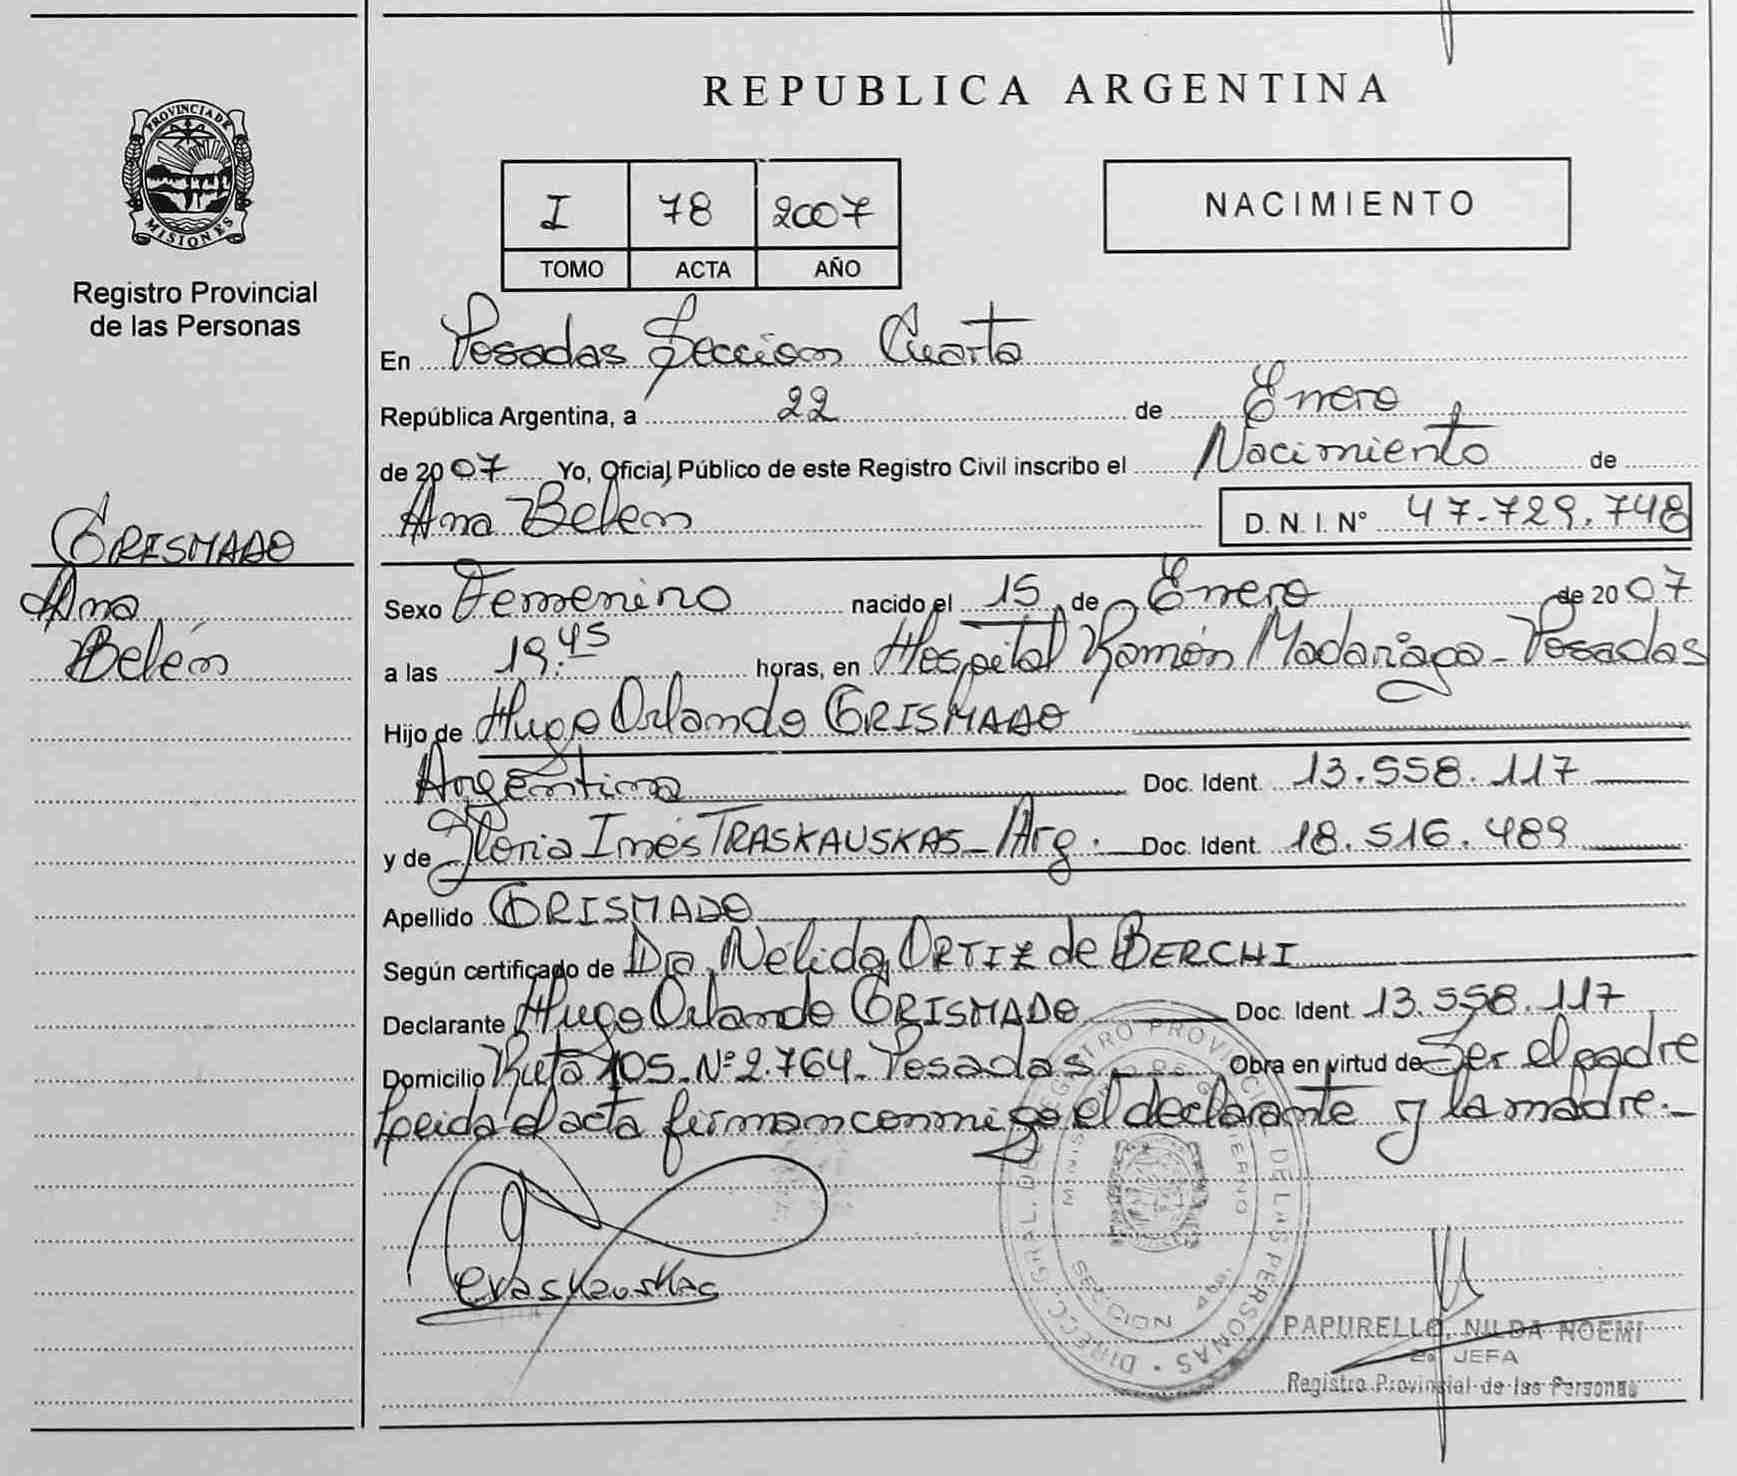 REPUBLICA ARGENTINA
PROVINCIA DE
MISIONES
Registro Provincial
de las Personas
I 78 2007
TOMO ACTA AÑO
NACIMIENTO
En Posadas Seccion Cuarta
República Argentina, a 22 de Enero
de 2007 Yo, Oficial Público de este Registro Civil inscribo el Nacimiento de
Ana Belén D. N. I. Nº 47.729.748
GRISMADO
Ana
Belén
Sexo Femenino nacido el 15 de Enero de 2007
a las 19.45 horas, en Hospital Ramón Madariaga - Posadas
Hijo de Hugo Orlando GRISMADO
Argentina Doc. Ident. 13.558.117
y de Gloria Inés TRASKAUSKAS - Arg. Doc. Ident. 18.516.489
Apellido GRISMADO
Según certificado de Dra. Nélida ORTIZ de BERCHI
Declarante Hugo Orlando GRISMADO Doc. Ident. 13.558.117
Domicilio Ruta 105 - Nº 2.764 - Posadas Obra en virtud de Ser el padre
Leida el acta firman conmigo el declarante y la madre.-
DIRECC. GRAL. DEL REGISTRO PROVINCIAL DE LAS PERSONAS
MINISTERIO DE GOBIERNO
PAPURELLO, NILDA NOEMI
2a JEFA
Registro Provincial de las Personas